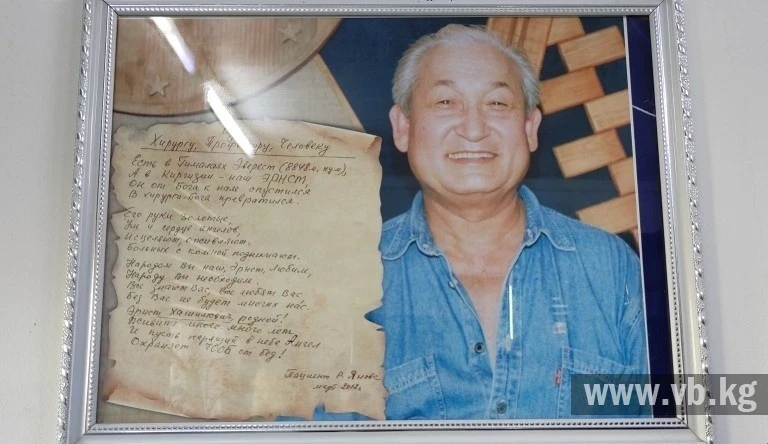 Хирургу, Профессору, Человеку
Есть в Гималаях Эверест (8848м, пу-з),
А в Киргизии – наш ЭРНСТ.
Он от Бога к нам спустился
В хирурга-Бога превратился.
Его руки золотые,
Ум и сердце ангелов,
Исцеляют, оживляют,
Больных с колней поднимают.
Народом Вы наш, Эрнст, Любим,
Народу Вы необходим.
Все знают Вас, все любят Вас
Без Вас не будет многих нас.
Эрнст Хашимович, родной!
Живите много лет
И пусть парящий в небе Ангел
Охраняет от бед!
Пациент Р.
2012г.
www.vb.kg